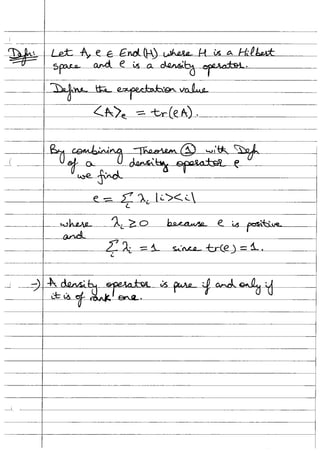 Defn: Let A, ρ ∈ End(H) where H is a Hilbert
space and ρ is a density operator.
Define the expectation value
<A>ρ = tr(ρA).
By combining Theorem ① with Defn
of a density operator ρ
we find
ρ = Σ_i λ_i |i><i|
where λ_i ≥ 0 because ρ is positive
and
Σ_i λ_i = 1 since tr(ρ) = 1.
→) A density operator is pure if and only if
it is of rank one.